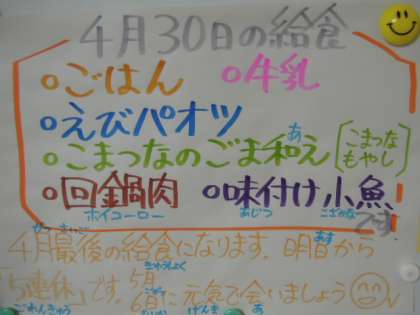 4月30日の給食
○ごはん ○牛乳
○えびパオツ
○こまつなのごま和え [こまつな もやし]
あ
○回鍋肉 ○味付け小魚
ホイコーロー あじつ こざかな
です。
4月最後の給食になります。明日から
がつ さいご きゅうしょく あす
「5連休」です。5月6日に元気で会いましょう
ごれんきゅう げんき あ